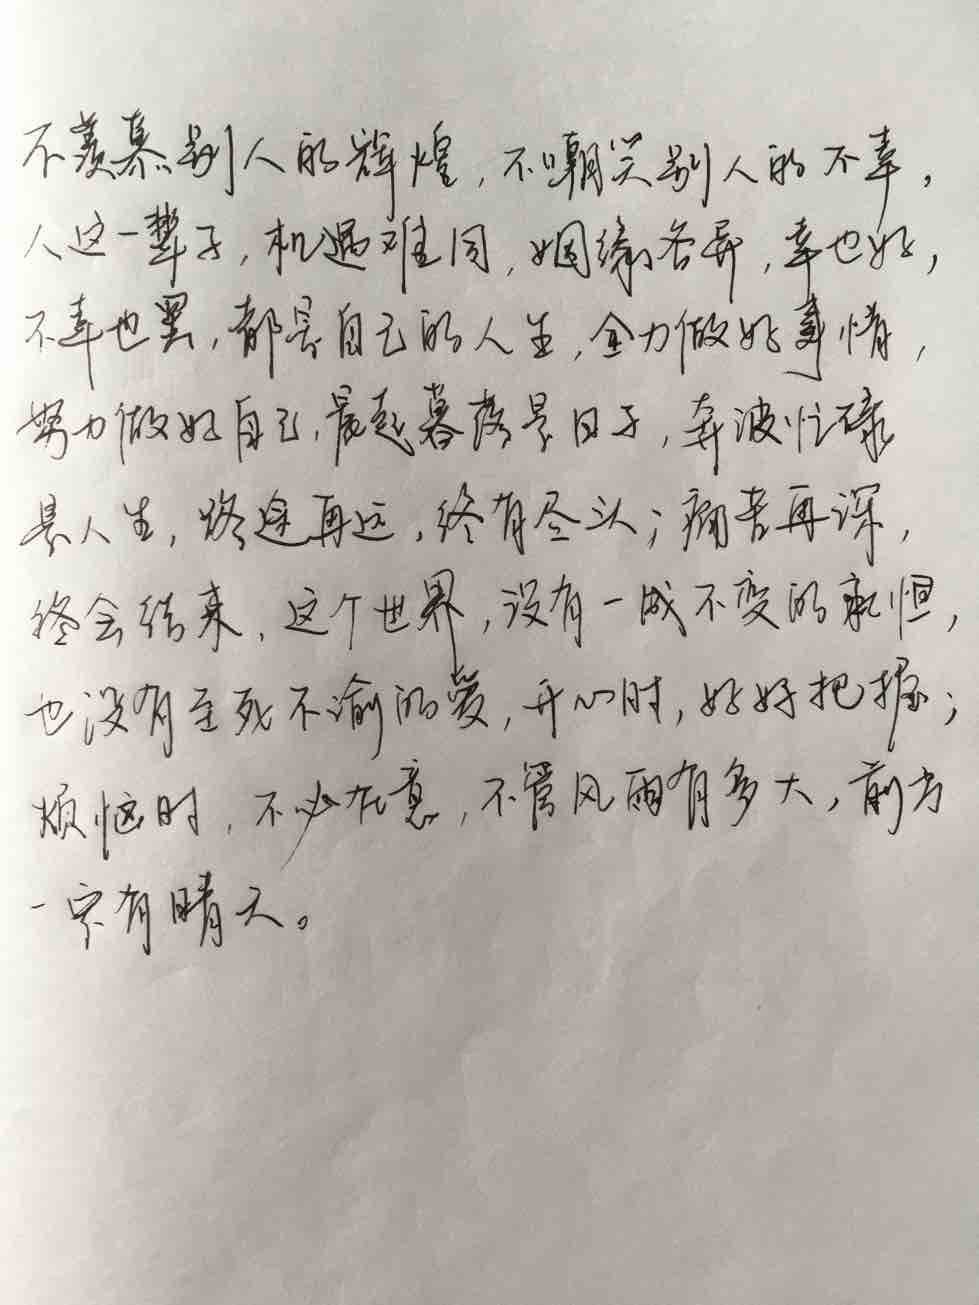 不羡慕别人的辉煌,不嘲笑别人的不幸,
人这一辈子,机遇难同,姻缘各异,幸也好,
不幸也罢,都是自己的人生,全力做好事情,
努力做好自己,晨起暮落是日子,奔波忙碌
是人生,路途再远,终有尽头;痛苦再深,
终会结束,这个世界,没有一成不变的永恒,
也没有至死不渝的爱,开心时,好好把握;
烦恼时,不必在意,不管风雨有多大,前方
一定有晴天。